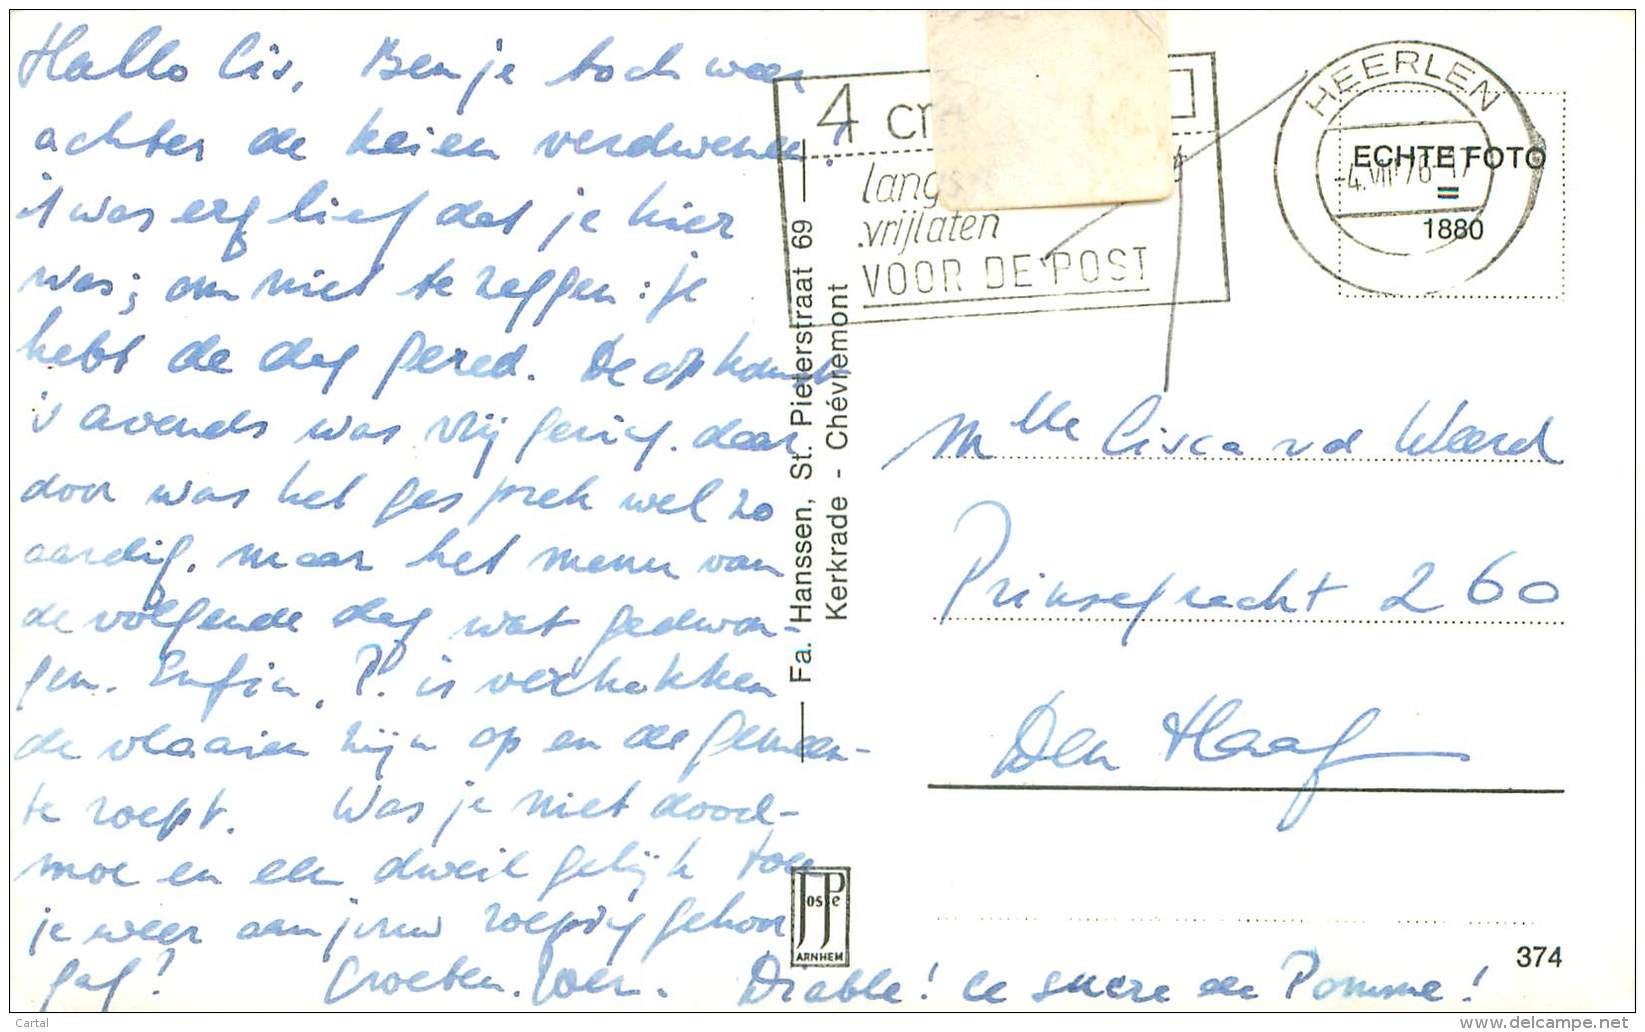 Hallo Cis, Ben je toch weer
achter de keien verdwenen!
't was erg lief dat je hier
was; om niet te zeggen: je
hebt de dag gered. De opkomst
's avonds was vrij gering. daar
door was het gesprek wel zo
aardig, maar het menu van
de volgende dag wat gedwon-
gen. Enfin, P. is verhakken
de vlaaien zijn op en de gemeen-
te roept. Was je niet dood-
moe en een dweil gelijk toen
je weer aan jouw roeping gehoor
gaf? Groeten. Diable! le sucre de Pomme!
Fa. Hanssen, St. Pieterstraat 69
Kerkrade - Chévremont
JosPe
ARNHEM
4 cm
langs
vrijlaten
VOOR DE POST
HEERLEN
-4.VII 76-17
ECHTE FOTO
=
1880
Mlle Cisca vd Weerd
Prinsegracht 260
Den Haag
374
Cartal
www.delcampe.net